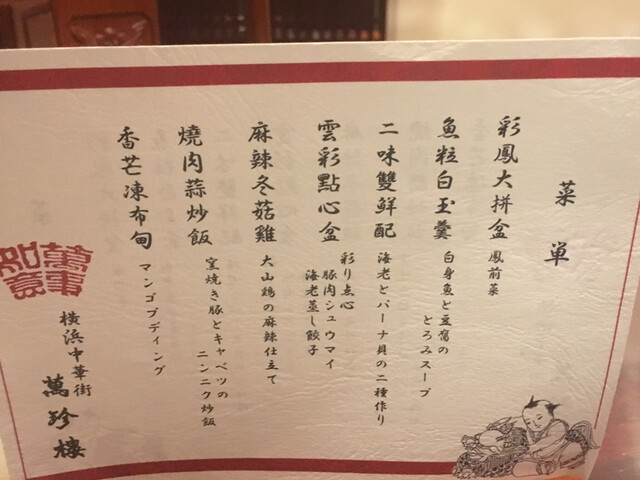 菜単
彩鳳大拼盆
鳳前菜
魚粒白玉羹
白身魚と豆腐の
とろみスープ
二味雙鮮配
海老とパーナ貝の二種作り
雲彩點心盆
彩り点心
豚肉シュウマイ
海老蒸し餃子
麻辣冬菇雞
大山鶏の麻辣仕立て
燒肉蒜炒飯
窯焼き豚とキャベツの
ニンニク炒飯
香芒凍布甸
マンゴプディング
萬事
如意
横浜中華街
萬珍樓